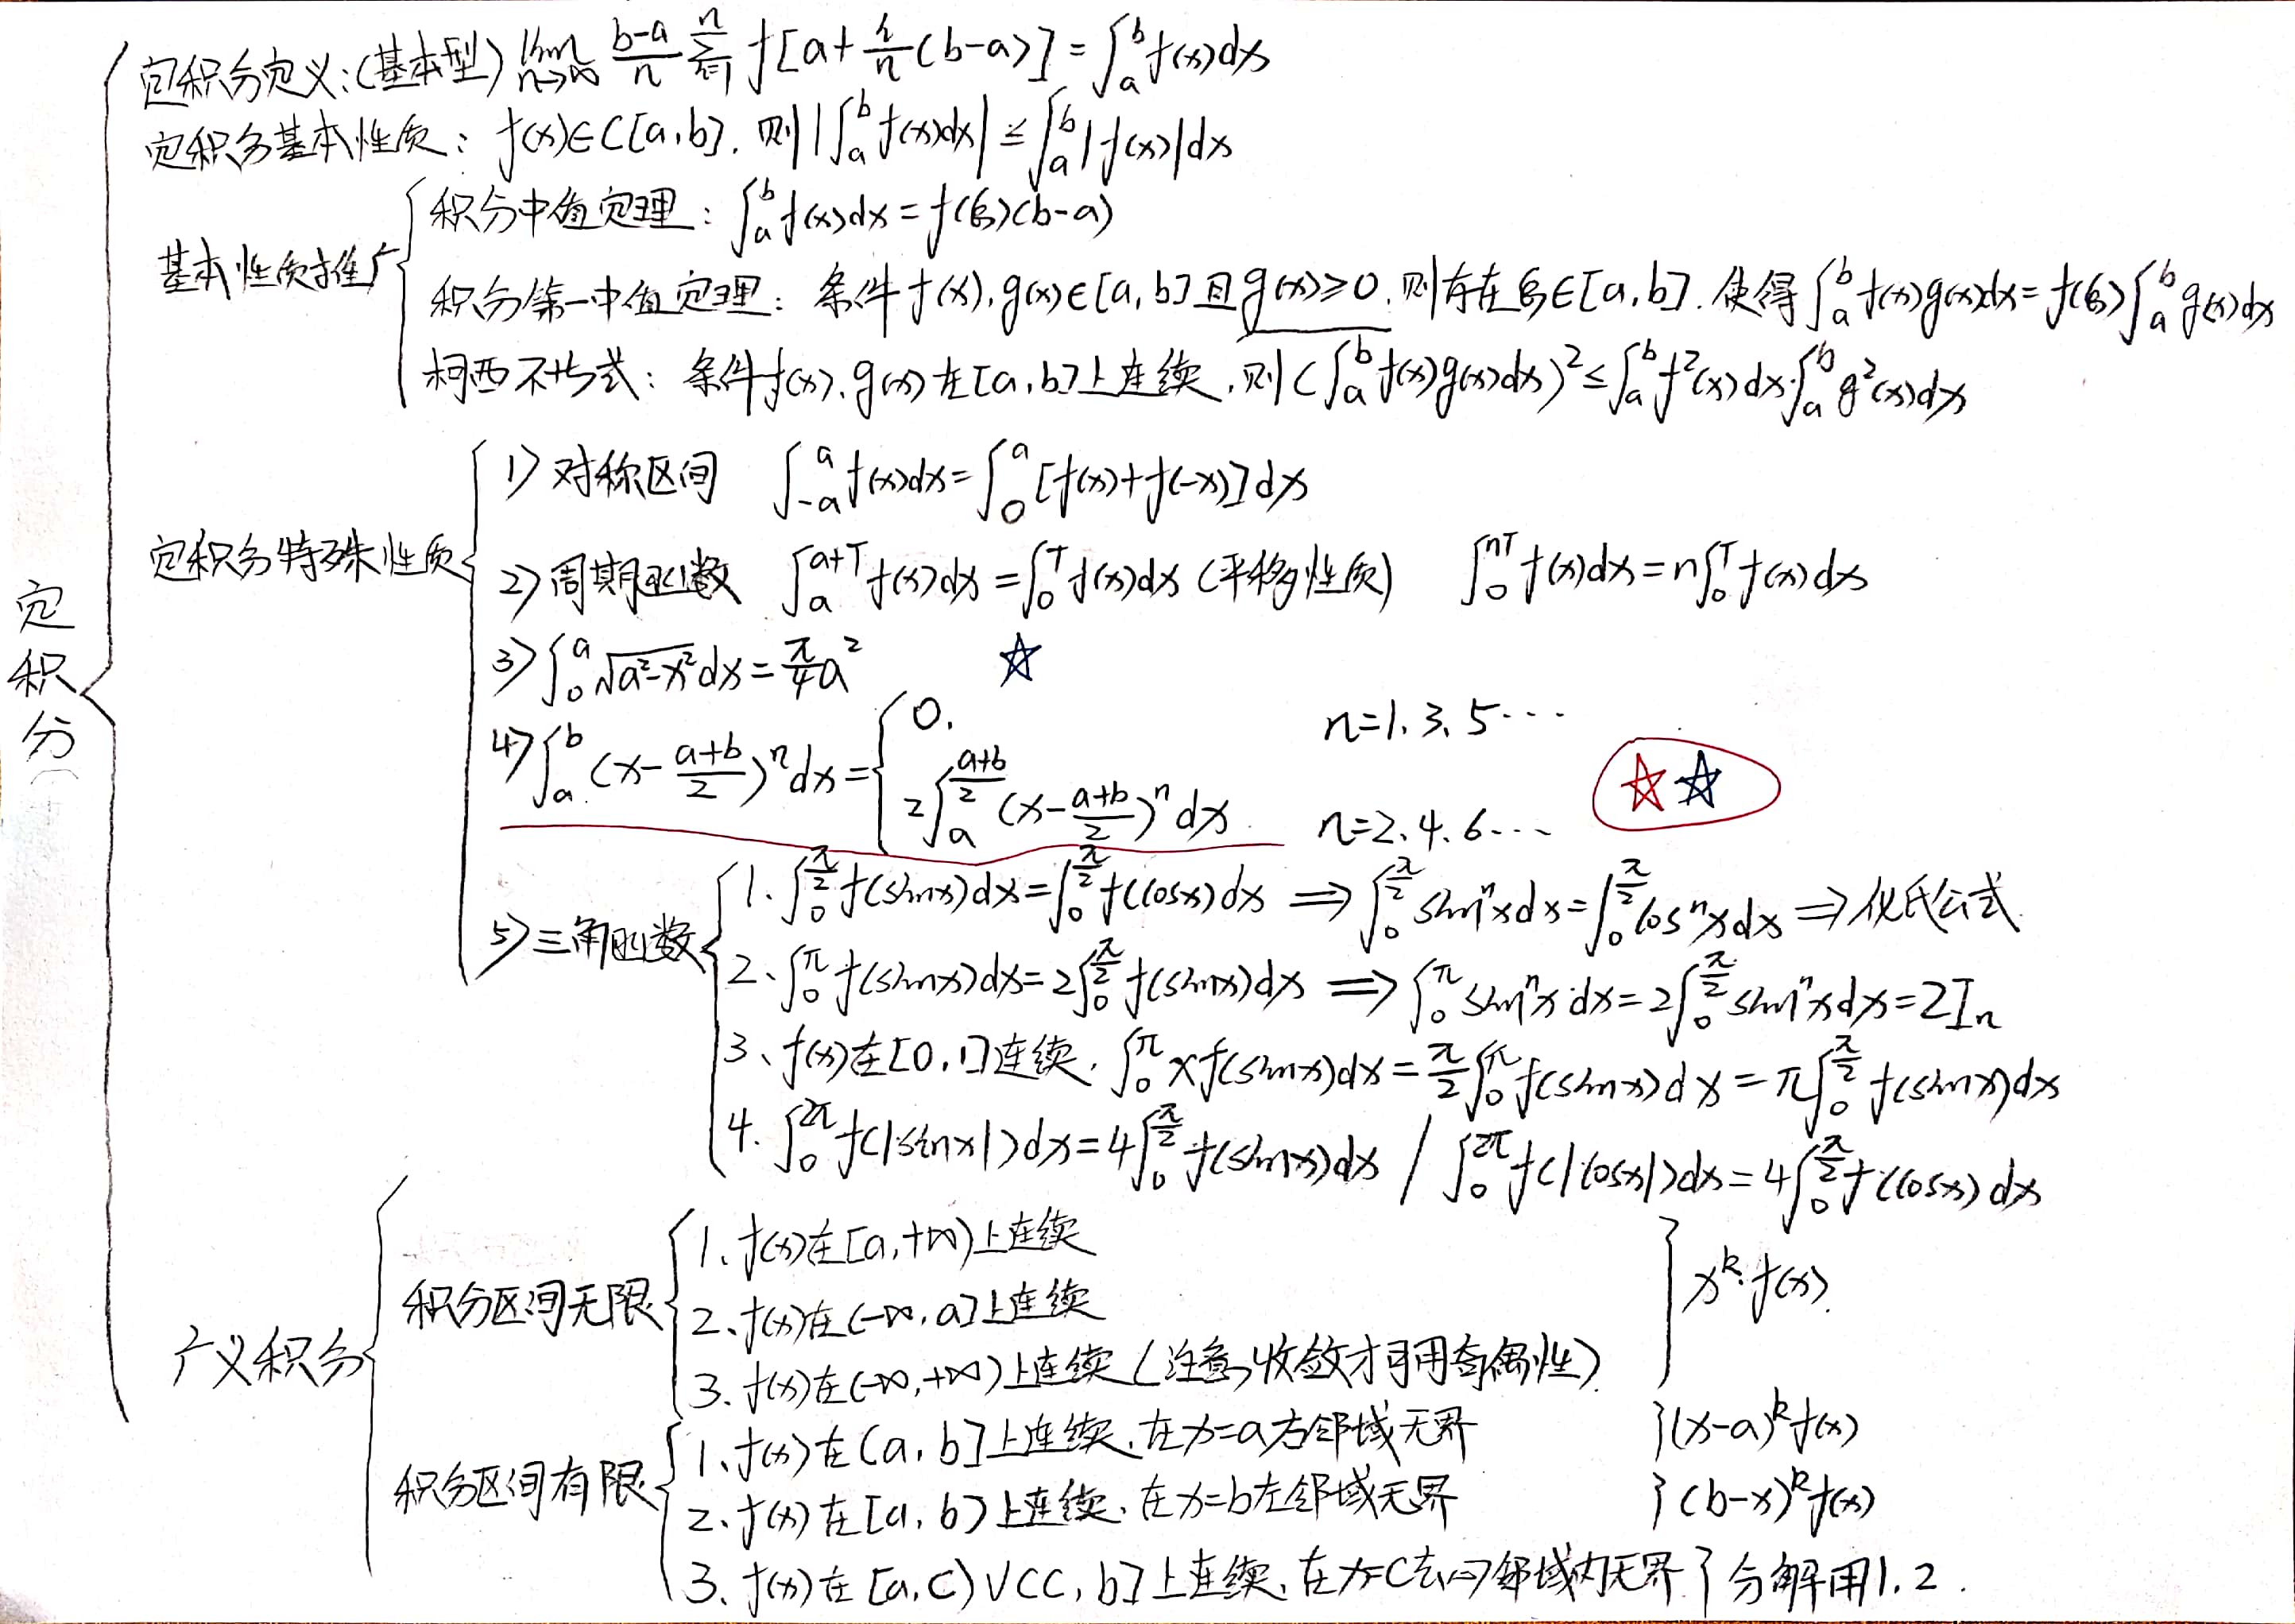 定积分
定积分定义:(基本型) lim n→∞ (b-a)/n Σ i=1 n f[a+ i/n (b-a)] = ∫_a^b f(x)dx
定积分基本性质: f(x)∈C[a,b]. 则|∫_a^b f(x)dx| ≤ ∫_a^b |f(x)|dx
基本性质推广
积分中值定理: ∫_a^b f(x)dx = f(ξ)(b-a)
积分第一中值定理: 条件f(x),g(x)∈[a,b]且g(x)≥0. 则存在ξ∈[a,b]. 使得∫_a^b f(x)g(x)dx = f(ξ)∫_a^b g(x)dx
柯西不等式: 条件f(x),g(x)在[a,b]上连续,则(∫_a^b f(x)g(x)dx)² ≤ ∫_a^b f²(x)dx·∫_a^b g²(x)dx
定积分特殊性质
1) 对称区间 ∫_{-a}^a f(x)dx = ∫_0^a [f(x)+f(-x)]dx
2) 周期函数 ∫_a^{a+T} f(x)dx = ∫_0^T f(x)dx (平移性质) ∫_0^{nT} f(x)dx = n∫_0^T f(x)dx
3) ∫_0^a √(a²-x²) dx = π/4 a² ☆
4) ∫_a^b (x - (a+b)/2)^n dx = { 0. n=1.3.5…
2∫_a^{(a+b)/2} (x - (a+b)/2)^n dx n=2.4.6… ☆☆
5) 三角函数
1. ∫_0^{π/2} f(sinx)dx = ∫_0^{π/2} f(cosx)dx ⇒ ∫_0^{π/2} sin^n x dx = ∫_0^{π/2} cos^n x dx ⇒ 公式
2、∫_0^π f(sinx)dx = 2∫_0^{π/2} f(sinx)dx ⇒ ∫_0^π sin^n x dx = 2∫_0^{π/2} sin^n x dx = 2I_n
3、f(x)在[0,1]连续. ∫_0^π xf(sinx)dx = π/2 ∫_0^π f(sinx)dx = π∫_0^{π/2} f(sinx)dx
4. ∫_0^{2π} f(|sinx|)dx = 4∫_0^{π/2} f(sinx)dx / ∫_0^{2π} f(|cosx|)dx = 4∫_0^{π/2} f(cosx)dx
广义积分
积分区间无限
1、f(x)在[a,+∞)上连续
2、f(x)在(-∞,a]上连续
3. f(x)在(-∞,+∞)上连续(注意,收敛才可用奇偶性)
} x^k·f(x)
积分区间有限
1、f(x)在(a,b]上连续,在x=a右邻域无界 } (x-a)^k f(x)
2、f(x)在[a,b)上连续,在x=b左邻域无界 } (b-x)^k f(x)
3、f(x)在[a,c)∨(c,b]上连续,在x=c去心邻域内无界 } 分解用1.2.